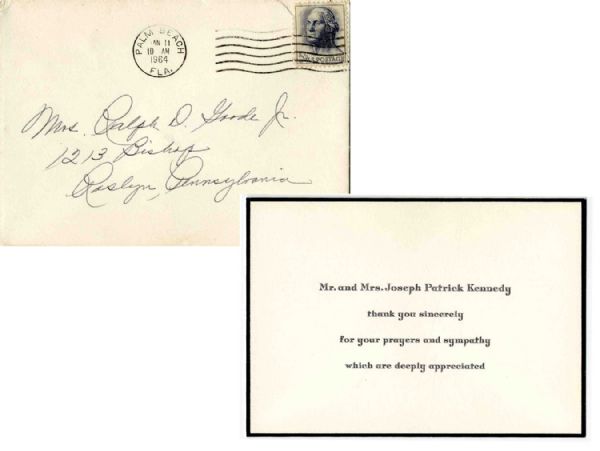 PALM BEACH
JAN 11
10 AM
1964
FLA.
Mrs. Ralph D. Goode Jr.
1213 Bishop
Roslyn, Pennsylvania
Mr. and Mrs. Joseph Patrick Kennedy
thank you sincerely
for your prayers and sympathy
which are deeply appreciated